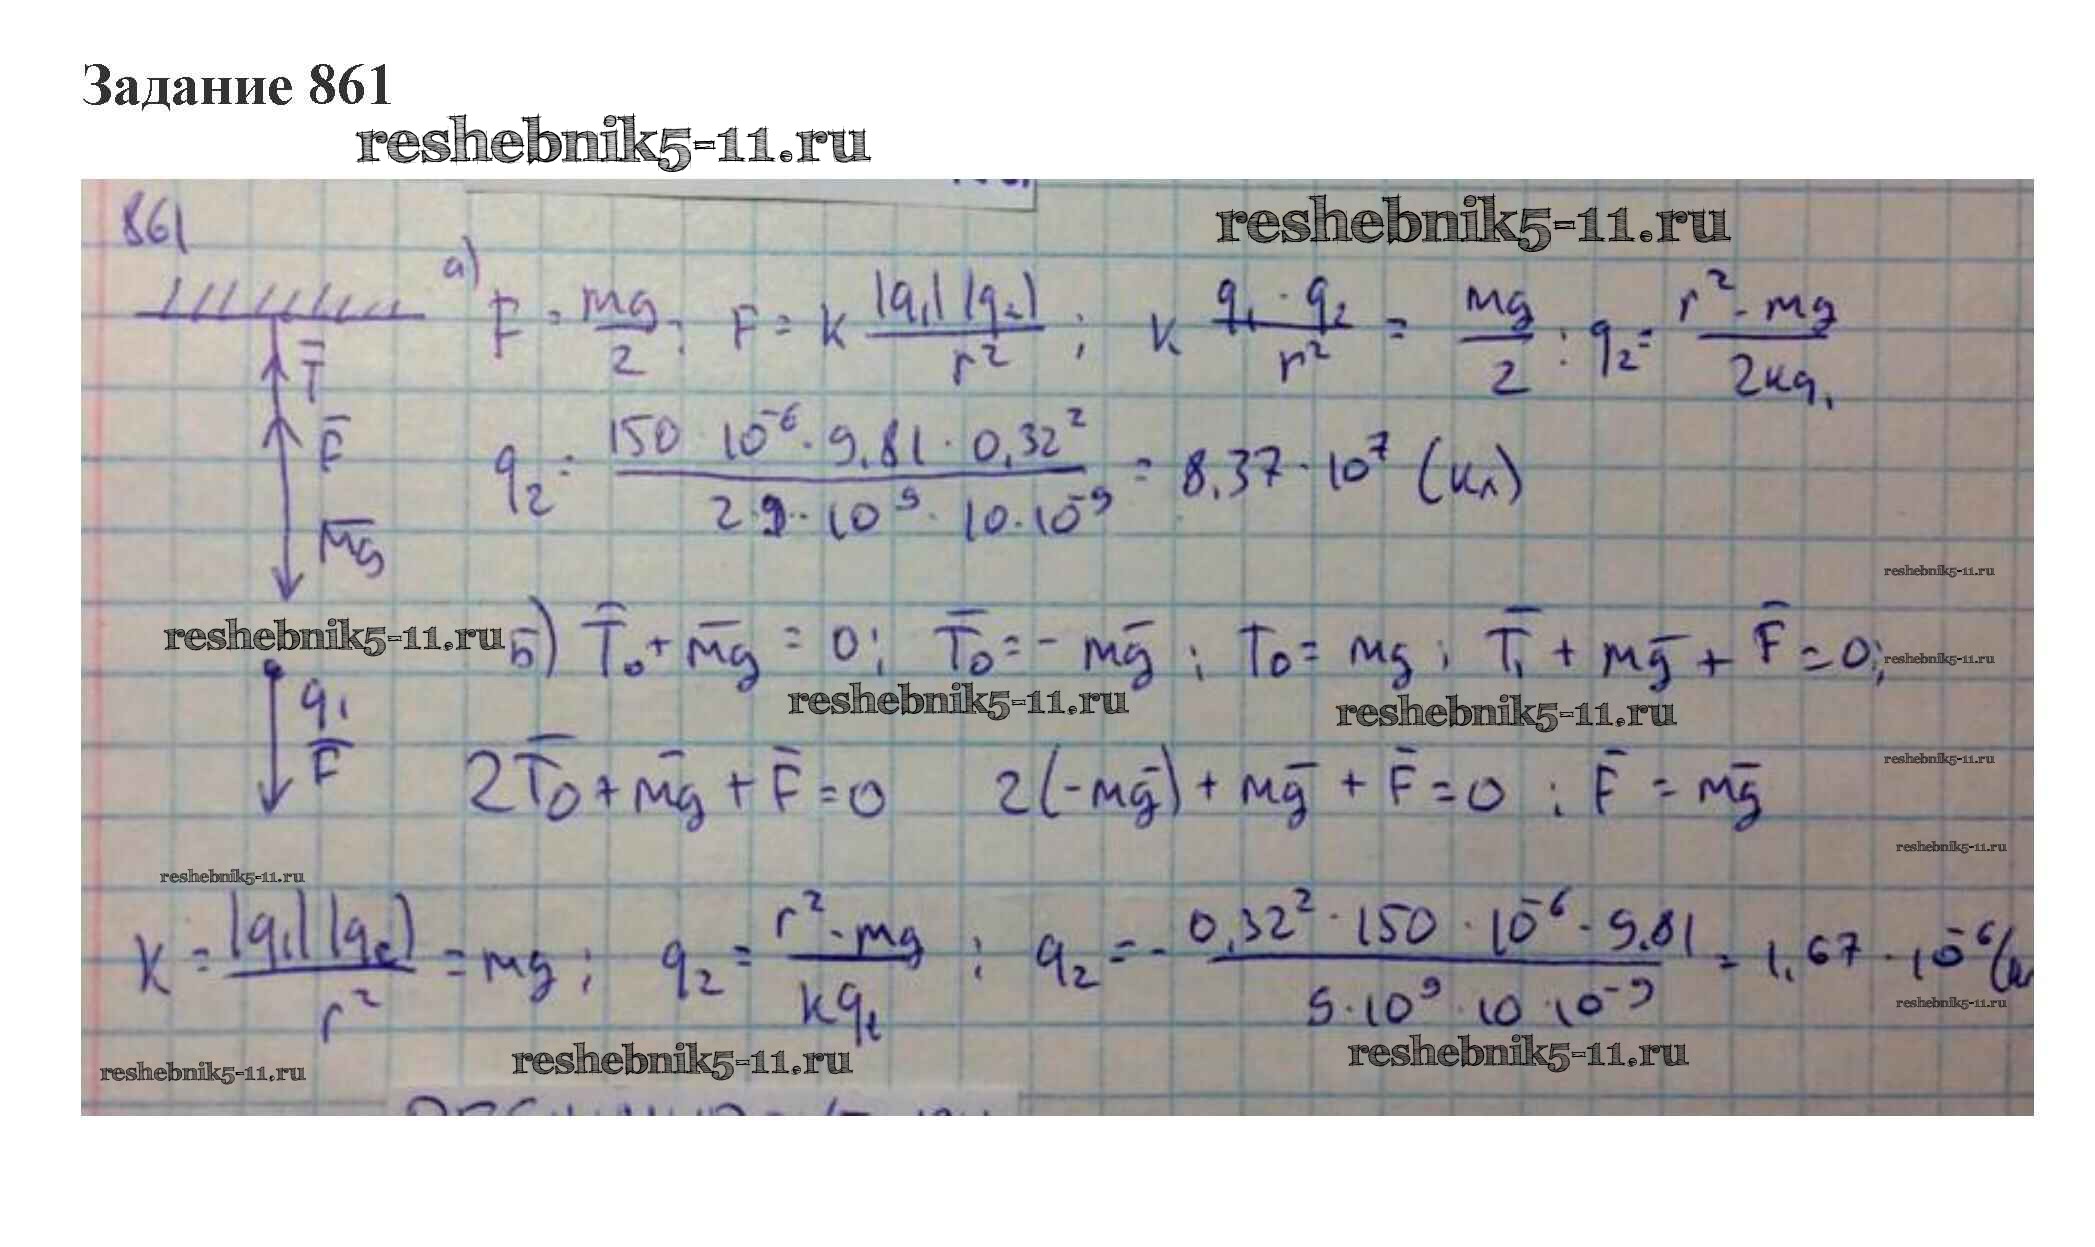 Задание 861
reshebnik5-11.ru
reshebnik5-11.ru
861
а) F = mg/2; F = k |q₁| |q₂| / r²; k q₁ · q₂ / r² = mg/2 : q₂ = r² · mg / 2kq₁
T̄
F̄
q₂ = 150 · 10⁻⁶ · 9,81 · 0,32² / 2 · 9 · 10⁹ · 10 · 10⁻⁹ = 8,37 · 10⁷ (кл)
m̄g
reshebnik5-11.ru
reshebnik5-11.ru
б) T̄₀ + mḡ = 0; T̄₀ = - mḡ; T₀ = mg; T̄₁ + mḡ + F̄ = 0;
reshebnik5-11.ru
reshebnik5-11.ru
reshebnik5-11.ru
q₁
F̄
2T̄₀ + mḡ + F̄ = 0 2(-mḡ) + mḡ + F̄ = 0; F̄ = mḡ
reshebnik5-11.ru
reshebnik5-11.ru
reshebnik5-11.ru
k = |q₁| |q₂| / r² = mg; q₂ = r² · mg / kq₁; q₂ = - 0,32² · 150 · 10⁻⁶ · 9,81 / 9 · 10⁹ · 10 · 10⁻⁹ = 1,67 · 10⁻⁶ (
reshebnik5-11.ru
reshebnik5-11.ru
reshebnik5-11.ru
reshebnik5-11.ru